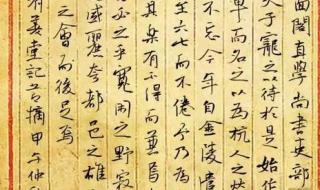 圖閣直學尚書吏部
天子寵之以詩於是始作
章而名之以為杭人之榮
不忘今年自金陵遣
至六七而不倦今乃為
其樂有不得而兼焉
必之乎寬閑之野寂
盛麗夸都邑之雄
之會而後足焉
有美堂記 摘甲午仲